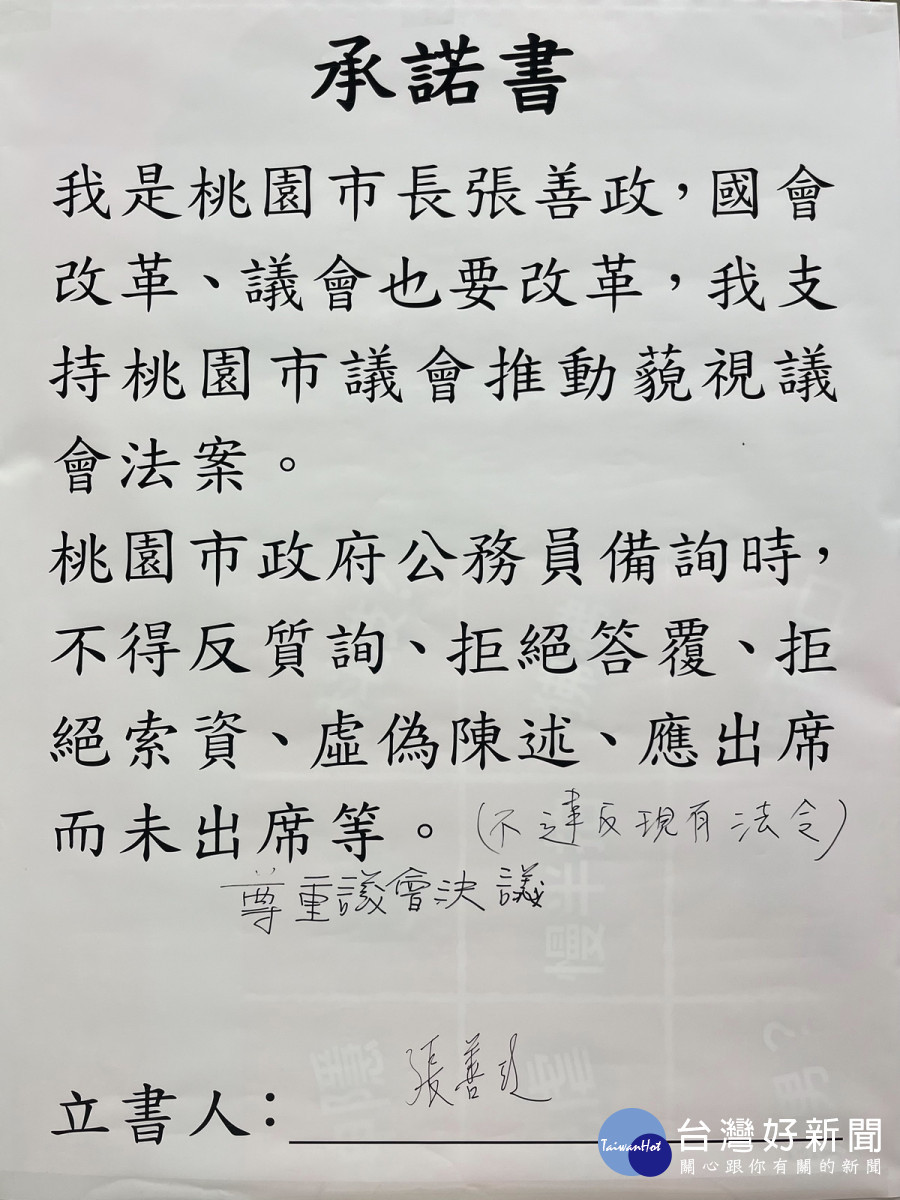 承諾書
我是桃園市長張善政，國會
改革、議會也要改革，我支
持桃園市議會推動藐視議
會法案。
桃園市政府公務員備詢時，
不得反質詢、拒絕答覆、拒
絕索資、虛偽陳述、應出席
而未出席等。(不違反現有法令)
尊重議會決議
張善政
立書人：
TaiwanHot
台灣好新聞
關心跟你有關的新聞